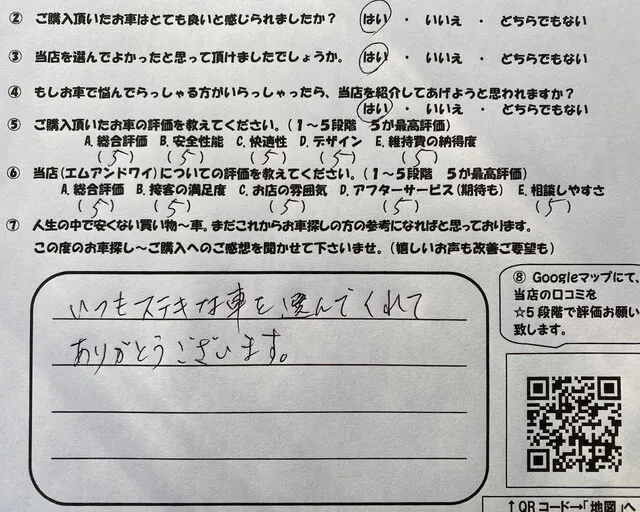 ② ご購入頂いたお車はとても良いと感じられましたか？ はい ・ いいえ ・ どちらでもない
③ 当店を選んでよかったと思って頂けましたでしょうか。 はい ・ いいえ ・ どちらでもない
④ もしお車で悩んでらっしゃる方がいらっしゃったら、当店を紹介してあげようと思われますか？
はい ・ いいえ ・ どちらでもない
⑤ ご購入頂いたお車の評価を教えてください。（１～５段階 ５が最高評価）
A. 総合評価 B. 安全性能 C. 快適性 D. デザイン E. 維持費の納得度
（ 5 ） （ 5 ） （ 5 ） （ 5 ） （ 5 ）
⑥ 当店（エムアンドワイ）についての評価を教えてください。（１～５段階 ５が最高評価）
A. 総合評価 B. 接客の満足度 C. お店の雰囲気 D. アフターサービス（期待も） E. 相談しやすさ
（ 5 ） （ 5 ） （ 5 ） （ 5 ） （ 5 ）
⑦ 人生の中で安くない買い物～車。まだこれからお車探しの方の参考になればと思っております。
この度のお車探し～ご購入へのご感想を聞かせて下さいませ。（嬉しいお声も改善ご要望も）
いつもステキな車を選んでくれて
ありがとうございます。
⑧ Googleマップにて、
当店の口コミを
☆５段階で評価お願い
致します。
↑QRコード→「地図」へ